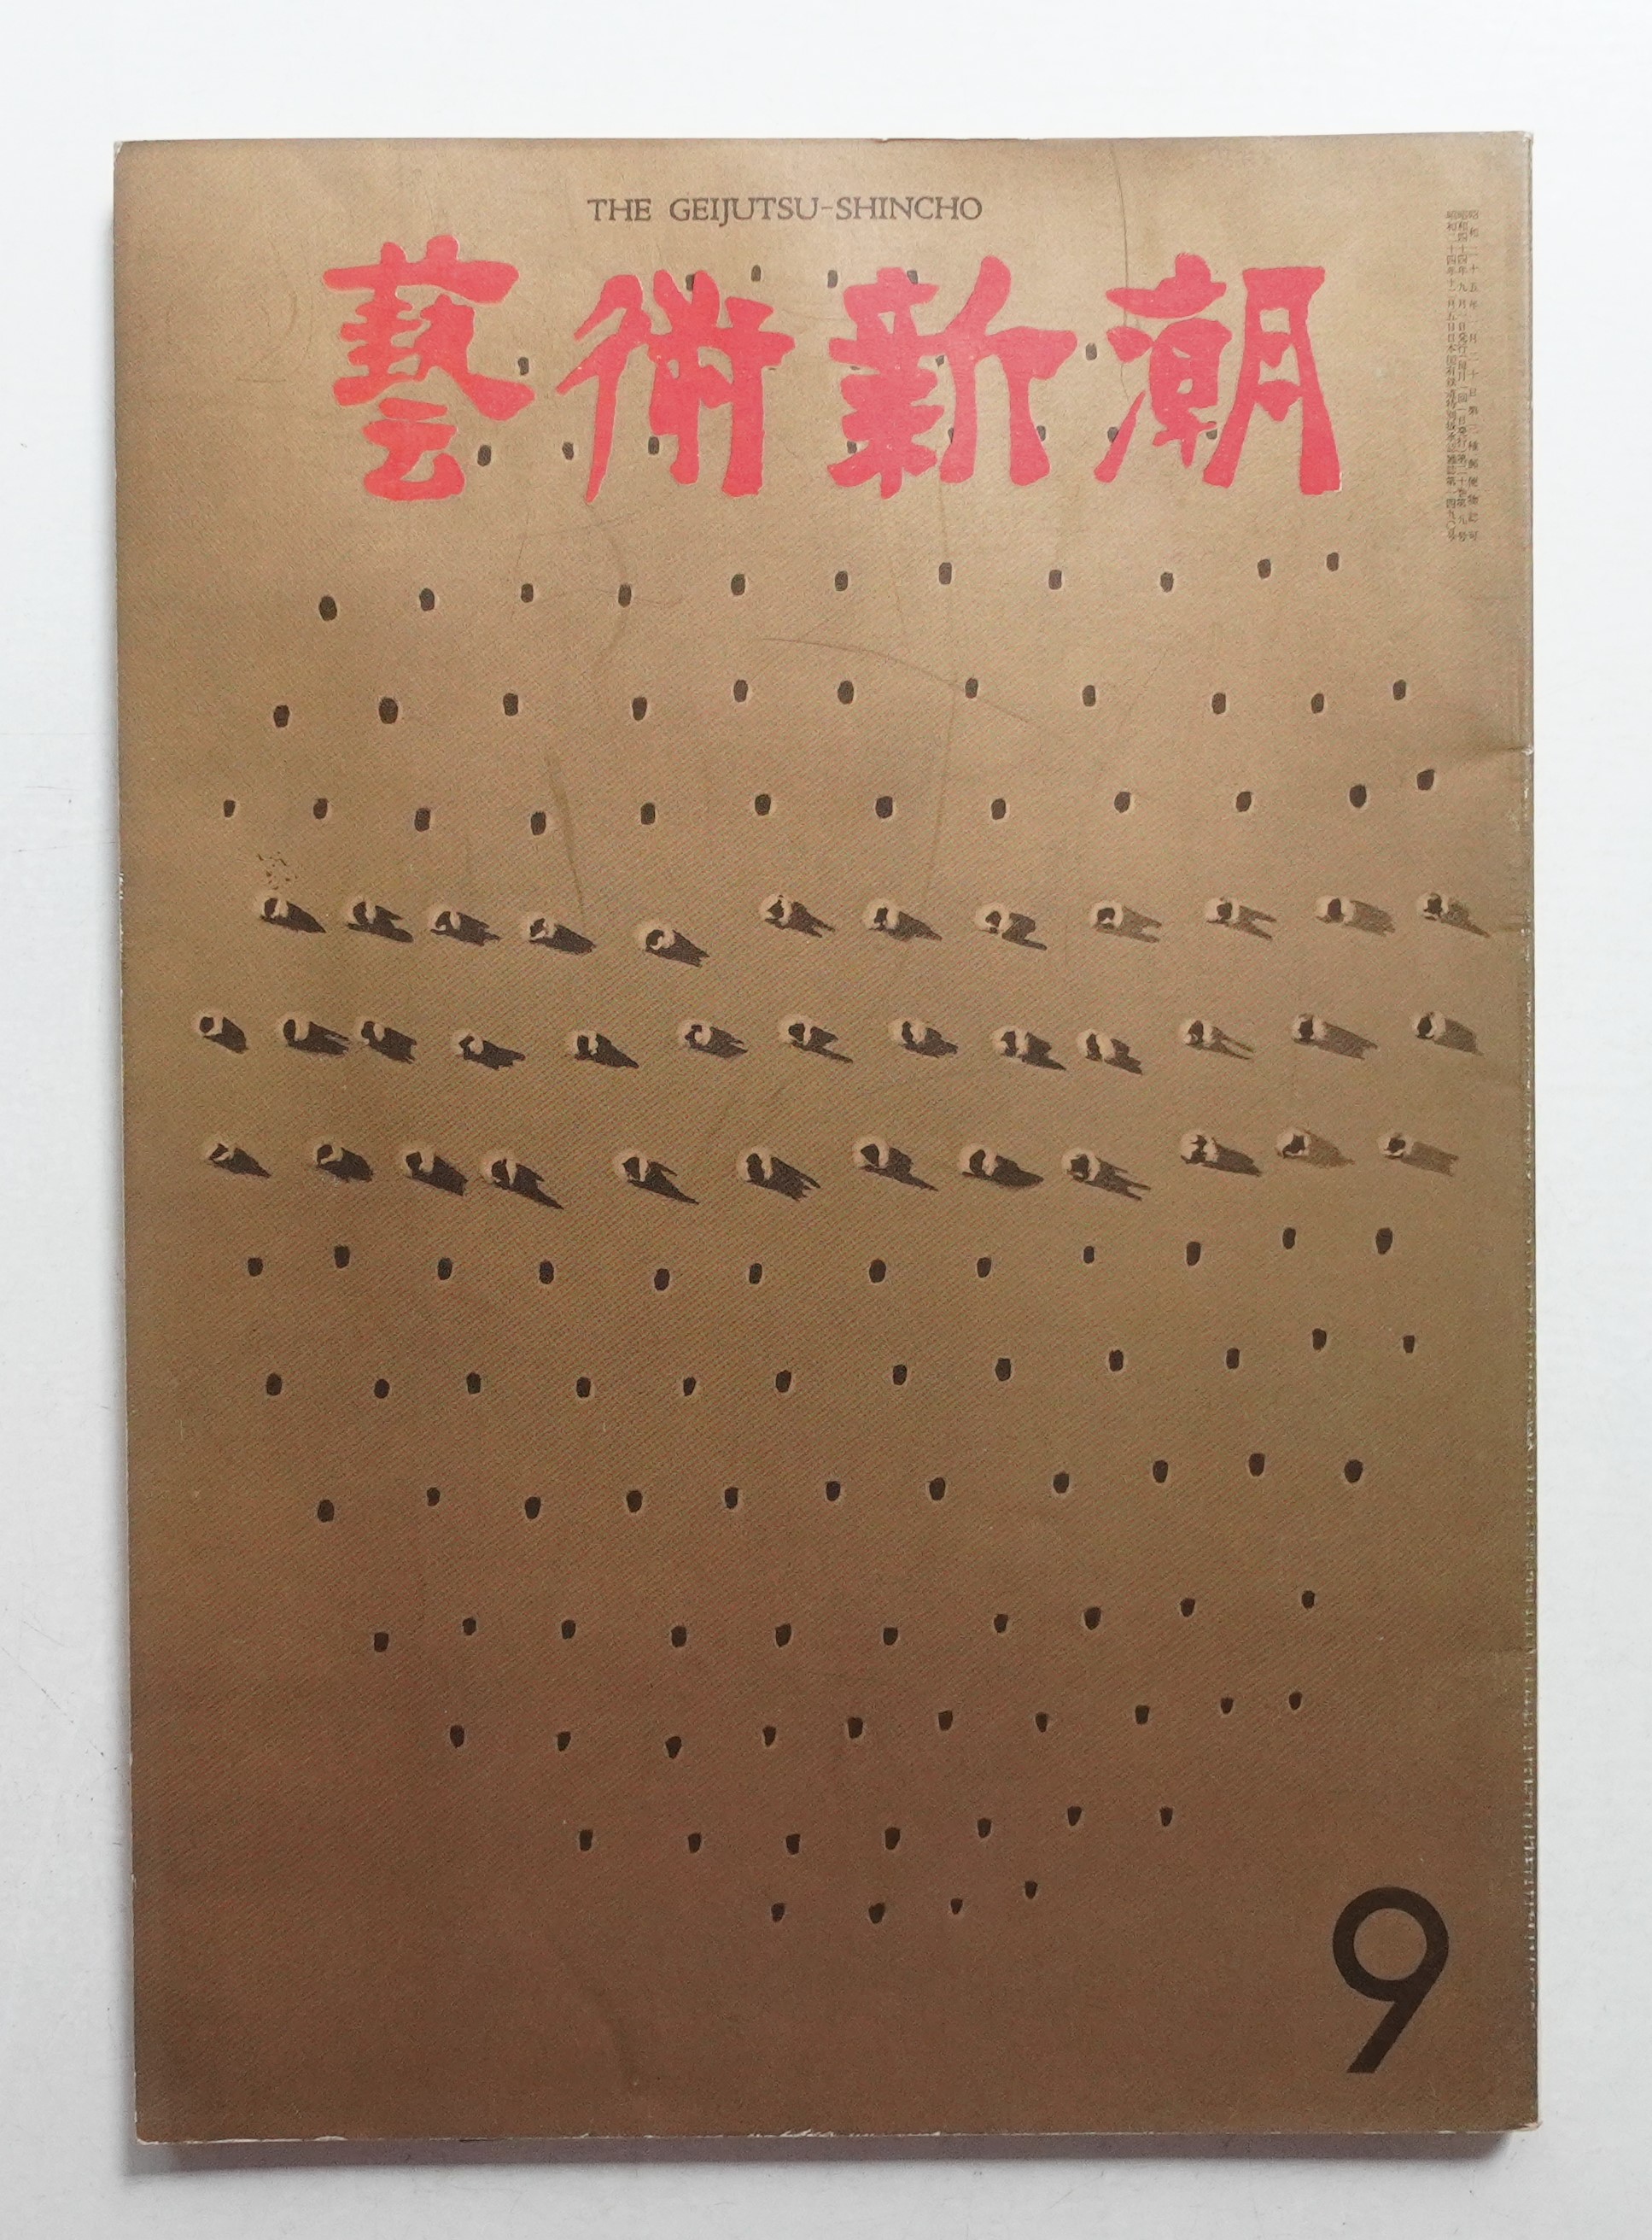 THE GEIJUTSU-SHINCHO
藝術新潮
昭和二十五年一月二十日第三種郵便物認可
昭和四十四年九月一日発行(毎月一回一日発行)第二十巻第九号
昭和二十四年十一月五日日本国有鉄道特別扱承認雑誌第一四九〇号
9